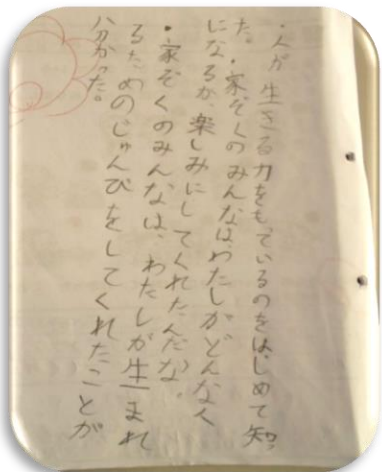 ・人が生きる力をもっているのをはじめて知っ
た。・家ぞくのみんなは、わたしがどんなく
になるか、楽しみにしてくれたんだな。
・家ぞくのみんなは、わたしが生まれ
るためのじゅんびをしてくれたことが
分かった。